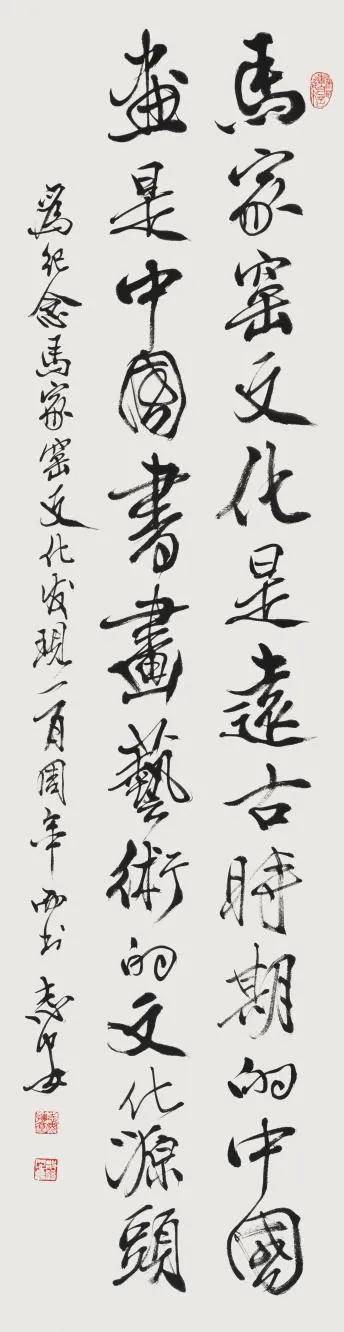 馬家窑文化是遠古時期的中國
畫是中國書畫藝術的文化源頭
爲纪念馬家窑文化发現一百周年 而书